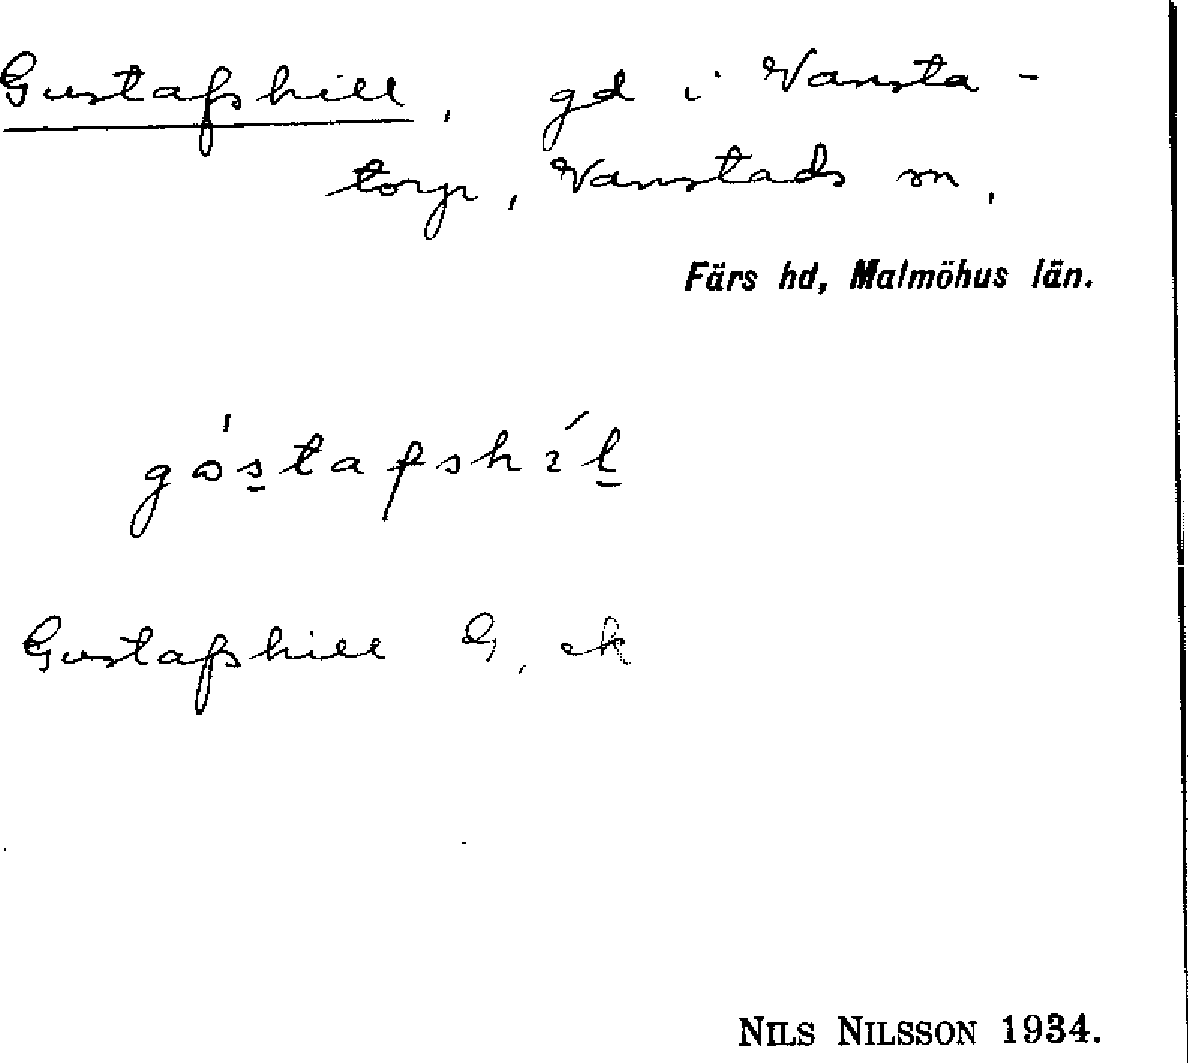 Gustafshill, gd i Vansta-
torp, Vanstads sn.
Färs hd, Malmöhus län.
gòstafshíl
Gustafshill G, ek
NILS NILSSON 1934.